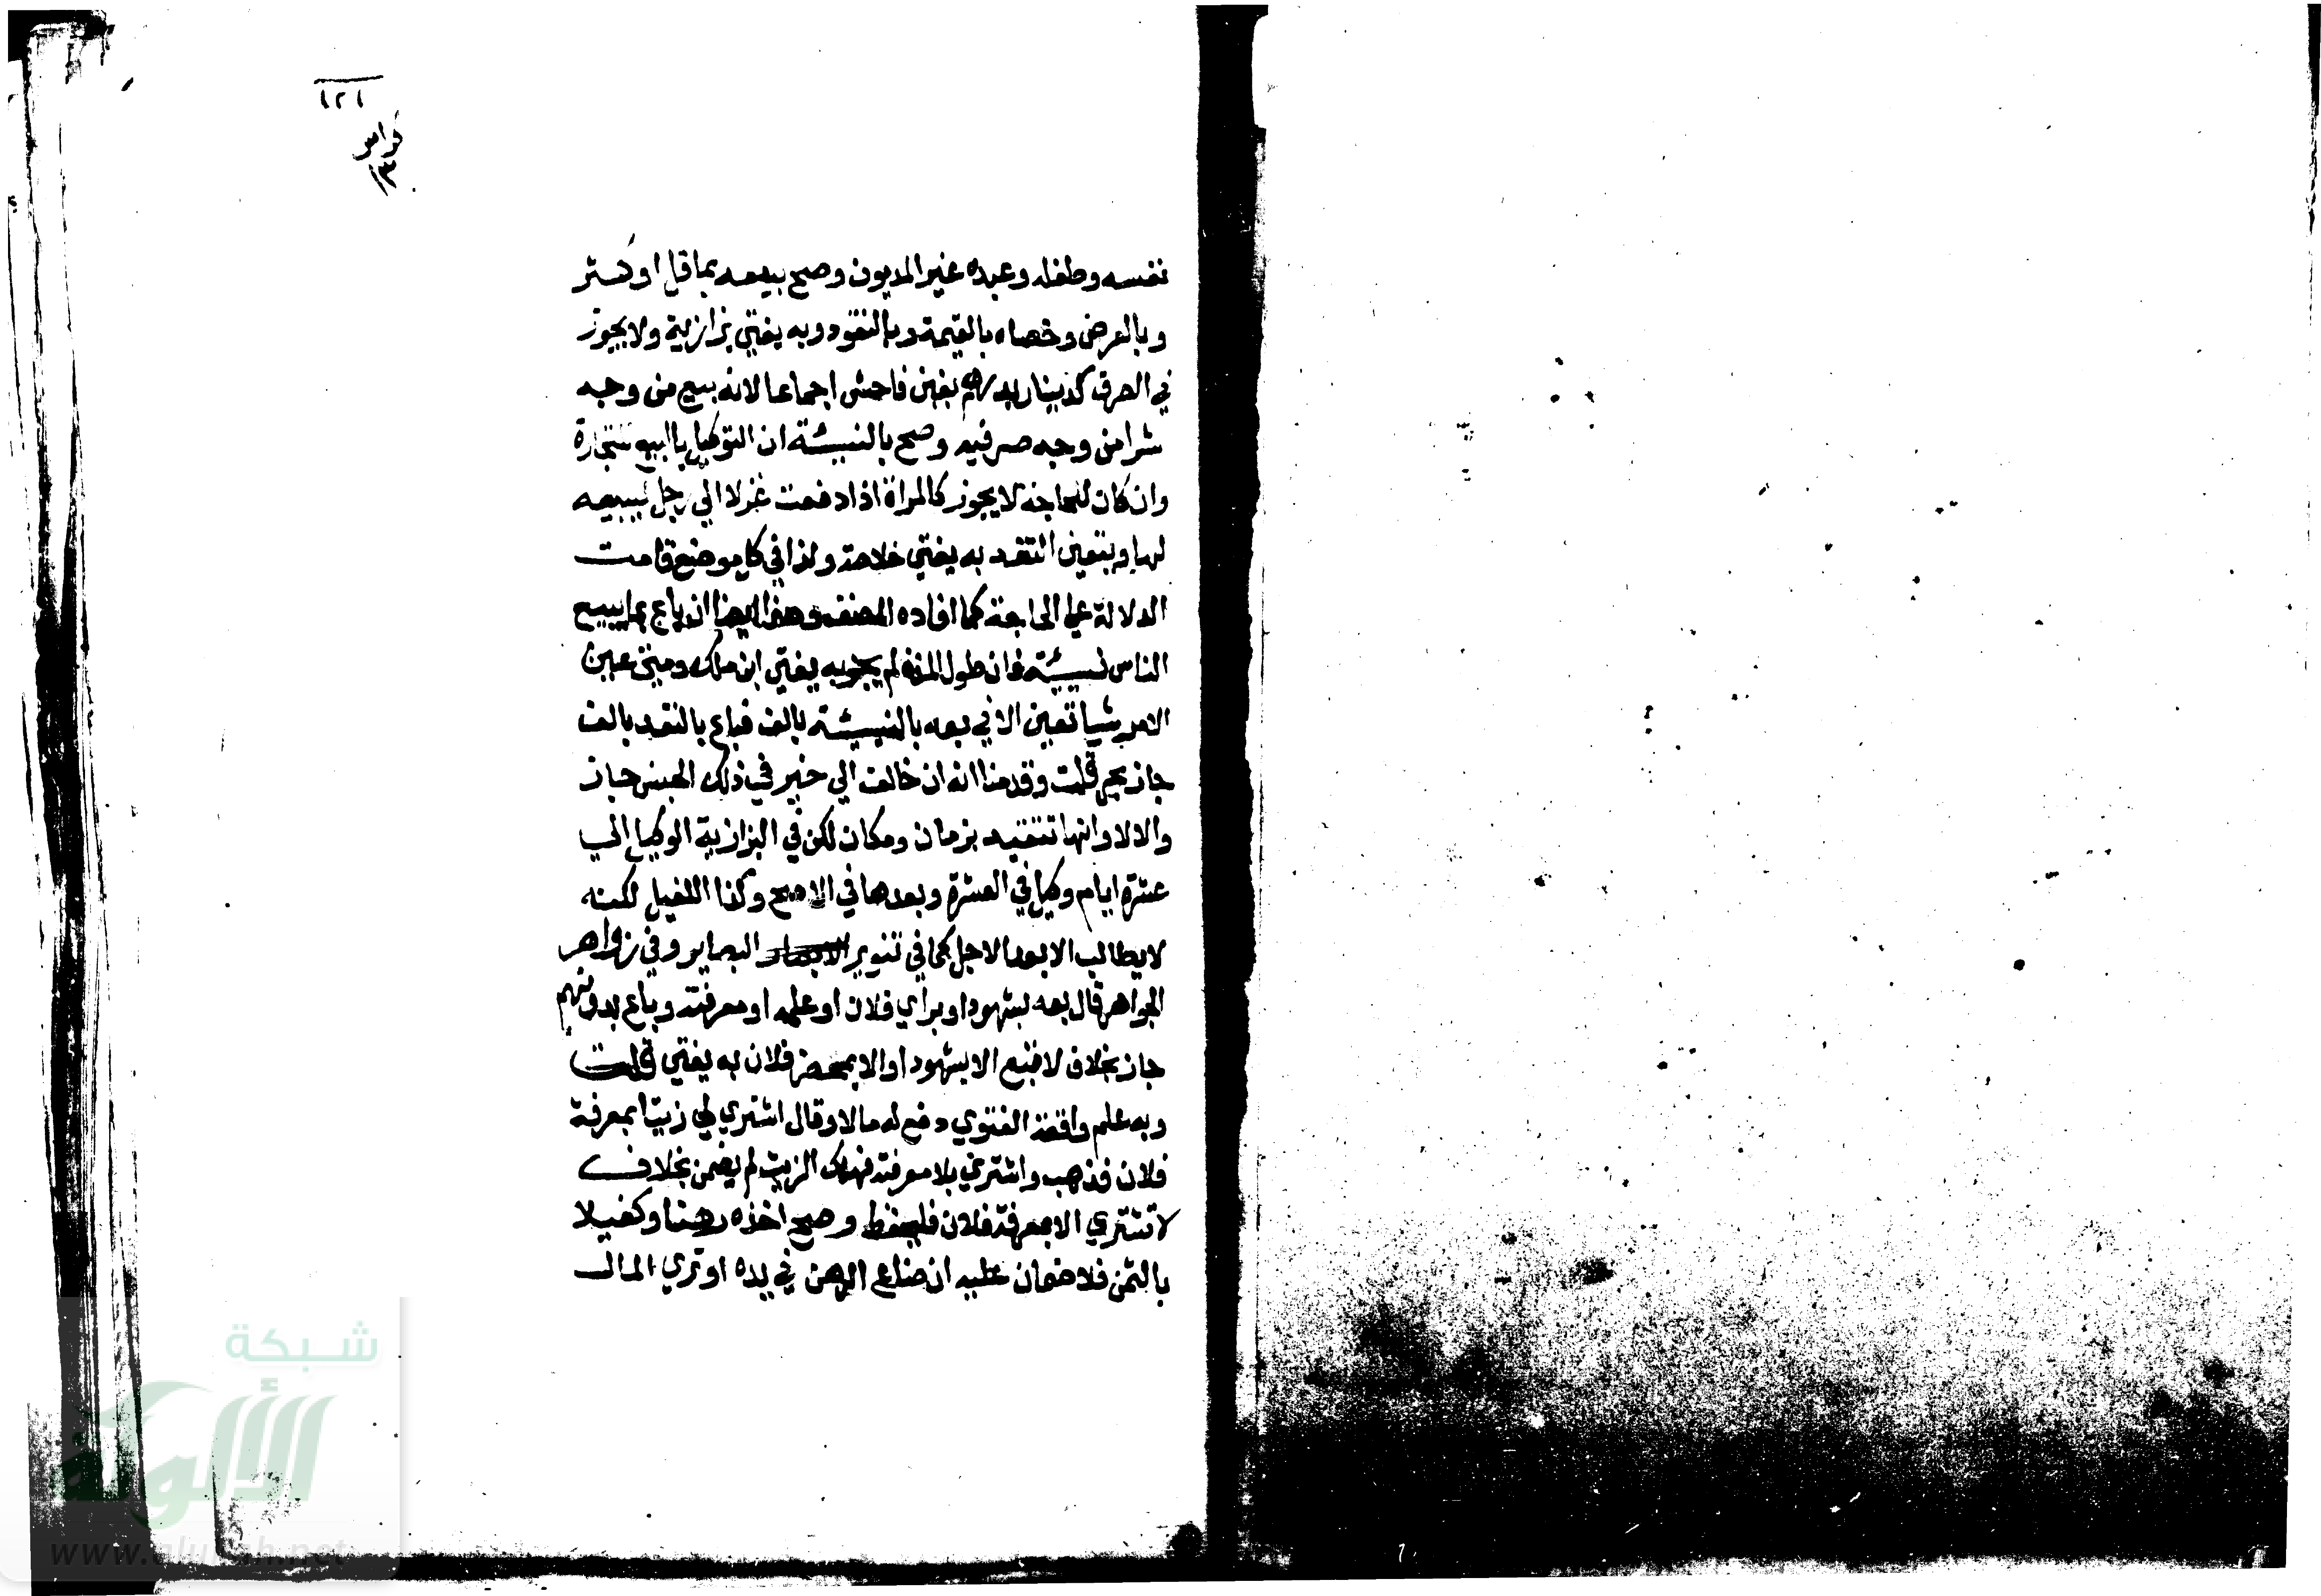 ١٢١
كراس
١٣
نفسه وطفله وعبده غير المديون وصح بيعه بما قل او كثر
وبالعرض وخصاه بالقيمة وبالنقود وبه يفتي بزازية ولا يجوز
في الصرف كدينار بدرهم بغبن فاحش اجماعا لانه بيع من وجه
شرا من وجه صرفيه وصح بالنسيئة ان التوكيل بالبيع للتجارة
وان كان للحاجة لا يجوز كالمراة اذا دفعت غزلا الي رجل ليبيعه
لها ويتعين النقد به يفتي خلاصة وكذا في كل موضع قامت
الدلالة علي الحاجة كما افاده المصنف وهذا ايضا ان باع بما يبيع
الناس نسيئة فان طول المدة لم يجز به يفتي ابن ملك ومتي عين
الامر شيا تعين الا في بعه بالنسيئة بالف فباع بالنقد بالف
جاز بحر قلت وقدمنا انه ان خالف الي خير في ذلك الجنس جاز
والا لا وانها تتقيد بزمان ومكان لكن في البزازية الوكيل الي
عشرة ايام وكيل في العشرة وبعدها في الاصح وكذا الكفيل لكنه
لا يطالب الا بعد الاجل كما في تنوير البصاير وفي زواهر
الجواهر قال بعه بشهود او براي فلان او علمه او معرفته وباع بدونهم
جاز بخلاف لا تبع الا بشهود او الا بمحضر فلان به يفتي قلت
وبه علم واقعة الفتوي دفع له مالا وقال اشتري لي زيتا بمعرفة
فلان فذهب واشتري بلا معرفته فهلك الزيت لم يضمن بخلاف
لا تشتري الا بمعرفة فلان فليحفظ وصح اخذه رهنا وكفيلا
بالثمن فلا ضمان عليه ان ضاع الرهن في يده او توي المال
شبكة
الألوكة
www.alukah.net